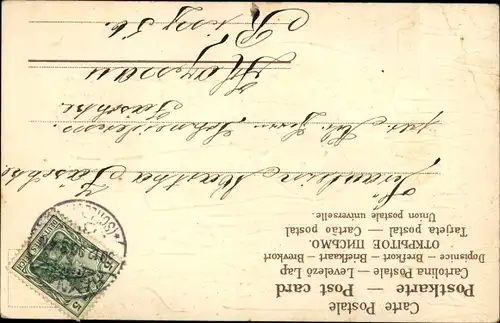 Carte Postale
Postkarte — Post card
Cartolina Postale — Levelező Lap
Dopisnice — Brefkort — Briefkaart — Brevkort
ОТКРЫТОЕ ПИСЬМО.
Tarjeta postal — Cartão postal
Union postale universelle.
Fräulein Martha Jäschke
per. Adr. Herrn Schneiderm.
Jäschke.
Haynau
Ring 56.
5